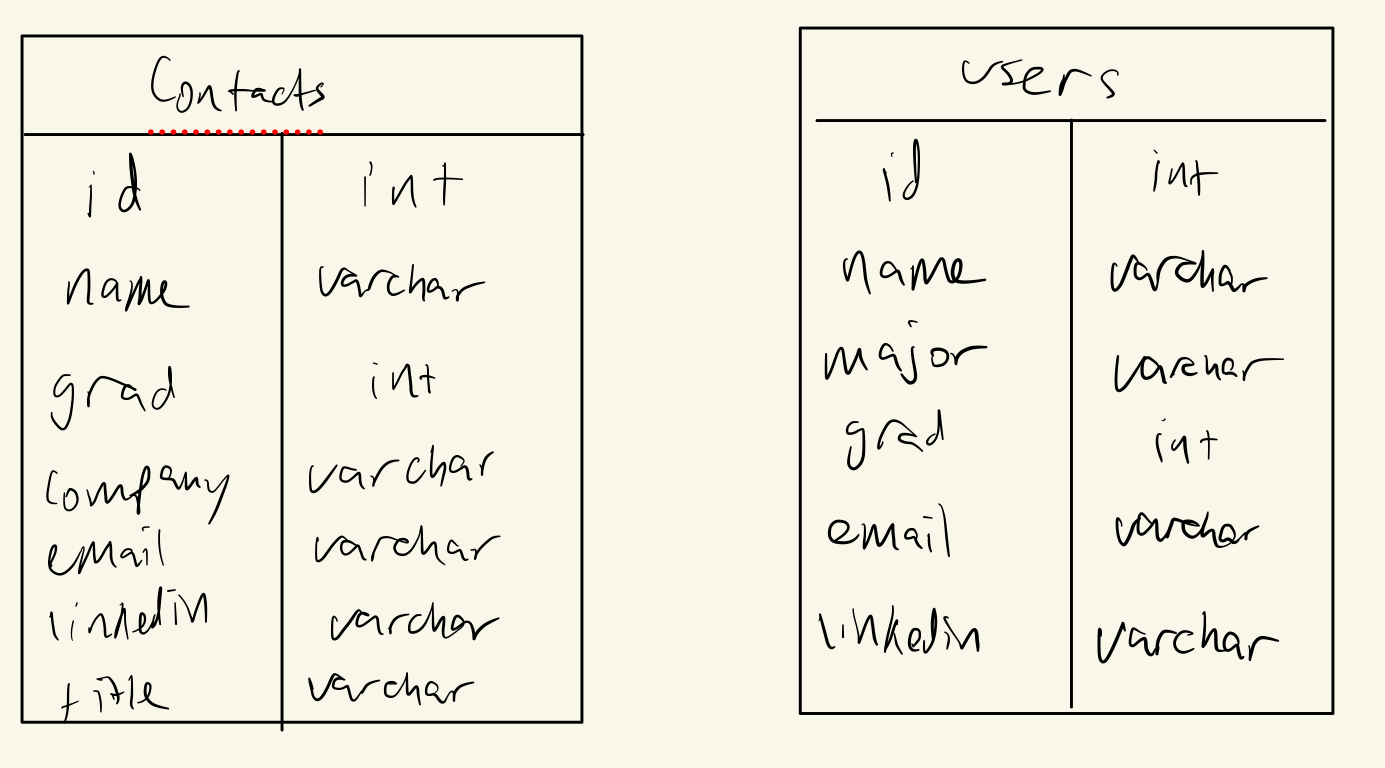 Contacts
id int
name varchar
grad int
company varchar
email varchar
linkedin varchar
title varchar
users
id int
name varchar
major varchar
grad int
email varchar
linkedin varchar